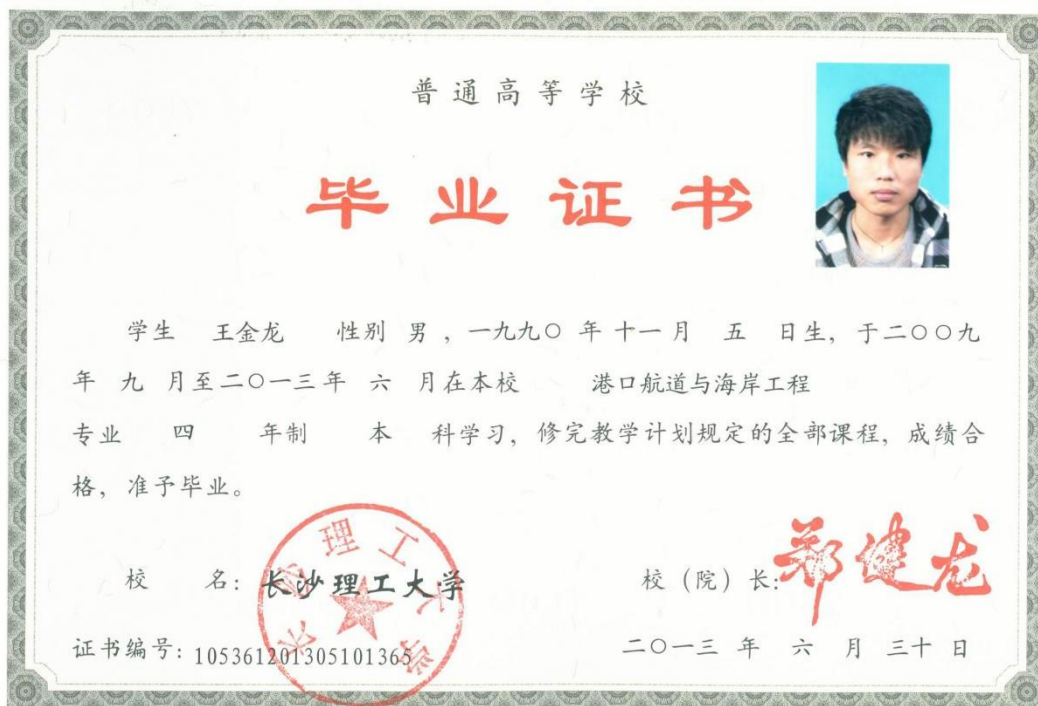 普通高等学校
毕业证书
学生 王金龙 性别 男 , 一九九〇 年 十一 月 五 日生, 于二〇〇九
年 九 月至二〇一三年 六 月在本校 港口航道与海岸工程
专业 四 年制 本 科学习, 修完教学计划规定的全部课程, 成绩合
格, 准予毕业。
校 名: 长沙理工大学 校 (院) 长: 郑健龙
长沙理工大学
证书编号: 105361201305101365 二〇一三 年 六 月 三十 日